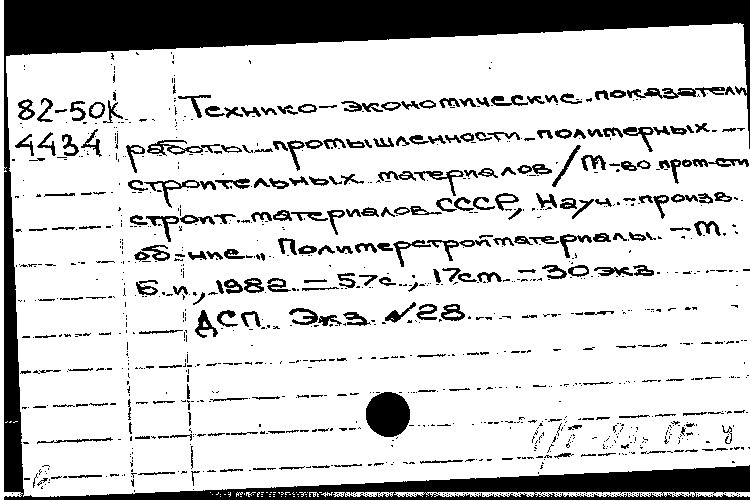 82-50К Технико-экономические показатели
4434 работы промышленности полимерных
строительных материалов / М-во пром-сти
строит. материалов СССР, Науч.-произв.
об-ние „Полимерстройматериалы. – М.:
Б.и., 1982 – 57с.; 17см – 30экз.
ДСП Экз №28